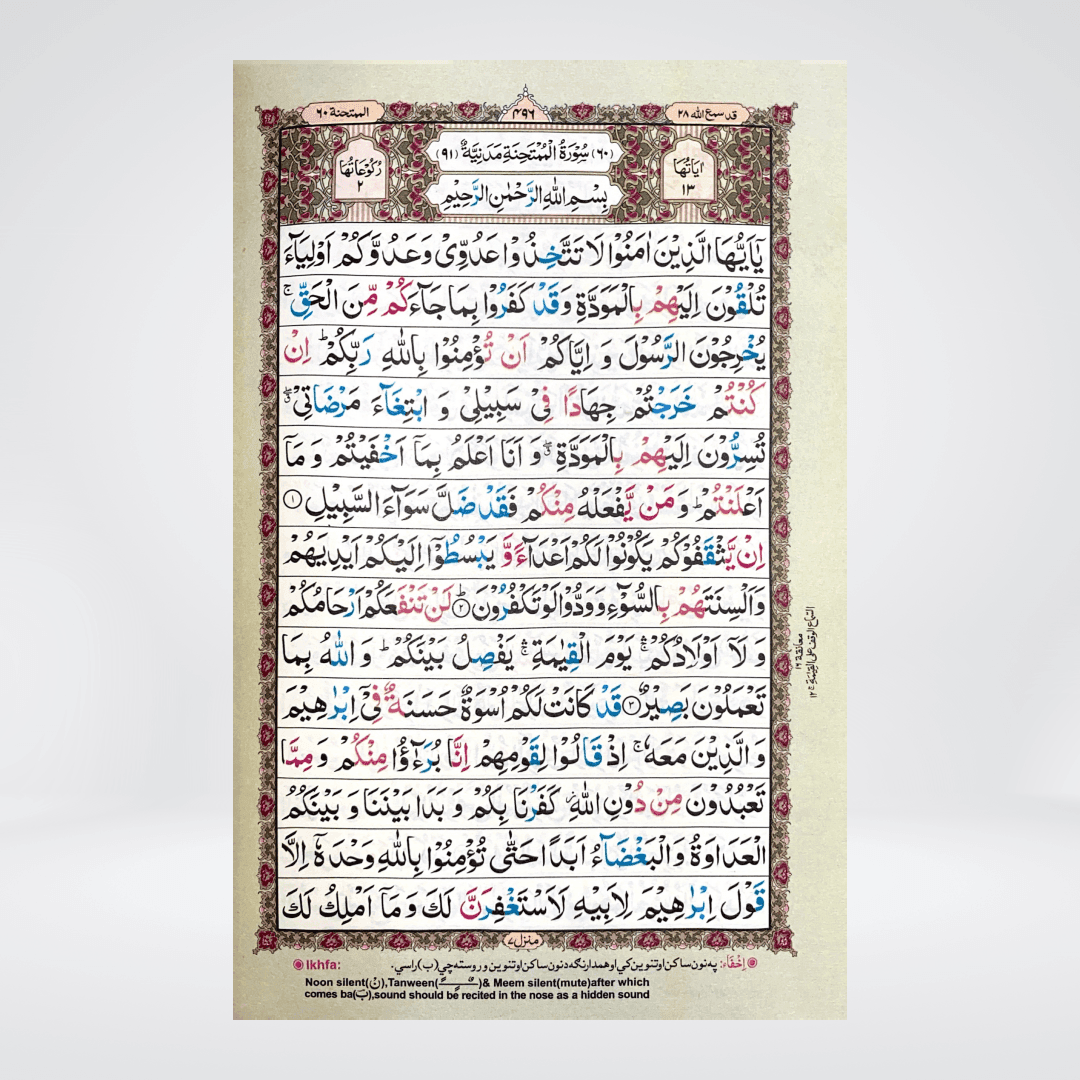 قد سمع الله ٢٨
٤٩٦
الممتحنة ٦٠
اٰيَاتُهَا ١٣
(٦٠) سُوْرَةُ الْمُمْتَحِنَةِ مَدَنِيَّةٌ (٩١)
رُكُوْعَاتُهَا ٢
بِسْمِ اللّٰهِ الرَّحْمٰنِ الرَّحِيْمِ
يٰٓاَيُّهَا الَّذِيْنَ اٰمَنُوْا لَا تَتَّخِذُوْا عَدُوِّيْ وَعَدُوَّكُمْ اَوْلِيَآءَ
تُلْقُوْنَ اِلَيْهِمْ بِالْمَوَدَّةِ وَقَدْ كَفَرُوْا بِمَا جَآءَكُمْ مِّنَ الْحَقِّ ۚ
يُخْرِجُوْنَ الرَّسُوْلَ وَ اِيَّاكُمْ اَنْ تُؤْمِنُوْا بِاللّٰهِ رَبِّكُمْ ؕ اِنْ
كُنْتُمْ خَرَجْتُمْ جِهَادًا فِيْ سَبِيْلِيْ وَ ابْتِغَآءَ مَرْضَاتِيْ ۖ
تُسِرُّوْنَ اِلَيْهِمْ بِالْمَوَدَّةِ ۖ وَ اَنَا اَعْلَمُ بِمَآ اَخْفَيْتُمْ وَ مَآ
اَعْلَنْتُمْ ؕ وَ مَنْ يَّفْعَلْهُ مِنْكُمْ فَقَدْ ضَلَّ سَوَآءَ السَّبِيْلِ ۝١
اِنْ يَّثْقَفُوْكُمْ يَكُوْنُوْا لَكُمْ اَعْدَآءً وَّ يَبْسُطُوْٓا اِلَيْكُمْ اَيْدِيَهُمْ
وَاَلْسِنَتَهُمْ بِالسُّوْٓءِ وَوَدُّوْا لَوْ تَكْفُرُوْنَ ؕ ۝٢ لَنْ تَنْفَعَكُمْ اَرْحَامُكُمْ
وَ لَآ اَوْلَادُكُمْ ۛۚ يَوْمَ الْقِيٰمَةِ ۛۚ يَفْصِلُ بَيْنَكُمْ ؕ وَ اللّٰهُ بِمَا
تَعْمَلُوْنَ بَصِيْرٌ ۝٣ قَدْ كَانَتْ لَكُمْ اُسْوَةٌ حَسَنَةٌ فِيْٓ اِبْرٰهِيْمَ
وَ الَّذِيْنَ مَعَهٗ ۚ اِذْ قَالُوْا لِقَوْمِهِمْ اِنَّا بُرَءٰٓؤُا مِنْكُمْ وَ مِمَّا
تَعْبُدُوْنَ مِنْ دُوْنِ اللّٰهِ ؗ كَفَرْنَا بِكُمْ وَ بَدَا بَيْنَنَا وَ بَيْنَكُمُ
الْعَدَاوَةُ وَالْبَغْضَآءُ اَبَدًا حَتّٰى تُؤْمِنُوْا بِاللّٰهِ وَحْدَهٗٓ اِلَّا
قَوْلَ اِبْرٰهِيْمَ لِاَبِيْهِ لَاَسْتَغْفِرَنَّ لَكَ وَ مَآ اَمْلِكُ لَكَ
منزل ٧
اِخْفَاء: په نون ساکن اوتنوین کي اوهمدارنګه دنون ساکن اوتنوین وروسته چي (ب) راسي.
Ikhfa:
Noon silent(نْ),Tanween(ـًـٍـٌ)& Meem silent(mute)after which
comes ba(بَ),sound should be recited in the nose as a hidden sound